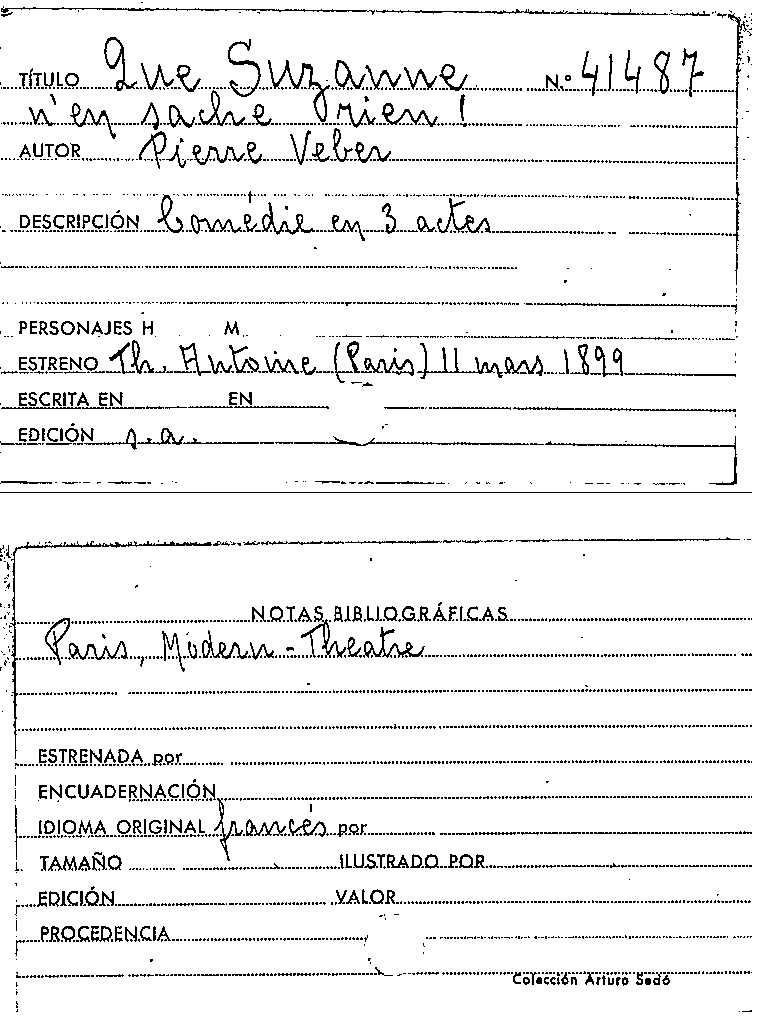 TÍTULO Que Suzanne N.º 41487
n'en sache rien !
AUTOR Pierre Veber
DESCRIPCIÓN Comédie en 3 actes
PERSONAJES H M
ESTRENO Th. Antoine (Paris) 11 mars 1899
ESCRITA EN EN
EDICIÓN s.a.
NOTAS BIBLIOGRÁFICAS
Paris, Modern-Theatre
ESTRENADA por
ENCUADERNACIÓN
IDIOMA ORIGINAL francés por
TAMAÑO ILUSTRADO POR
EDICIÓN VALOR
PROCEDENCIA
Colección Arturo Sedó